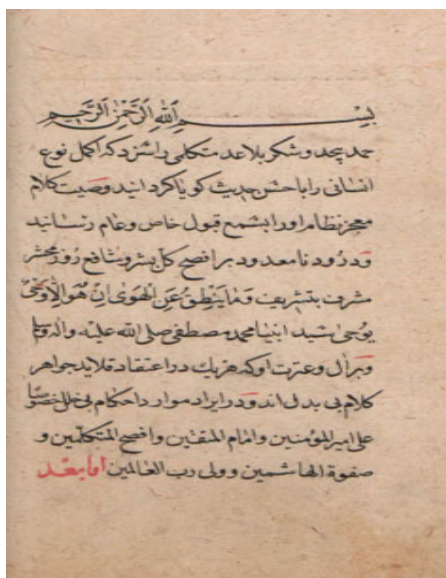 بسم الله الرحمن الرحيم
حمد بیحد و شکر بلاعد متکلمی را سزد که اکمل نوع
انسانی را باحسن حدیث کویا کردانید وصیت کلام
معجز نظام او را بسمع قبول خاص و عام رسانید
و درود نامعدود بر افصح کل بشر و شافع روز محشر
مشرف بتشریف وَمَا يَنطِقُ عَنِ الْهَوَىٰ اِنْ هُوَ اِلَّا وَحْيٌ
يُوحى سید انبیا محمد مصطفی صلی الله علیه واله وسلم
و بر آل و عترت او که هر یک در اعتقاد قلاید جواهر
کلام بی بدل اند و در ایراد موارد احکام بی خلل خصوصا
علی امیر المؤمنین وامام المتقین وافصح المتکلمین و
صفوة الهاشمیین و ولی رب العالمین اما بعد